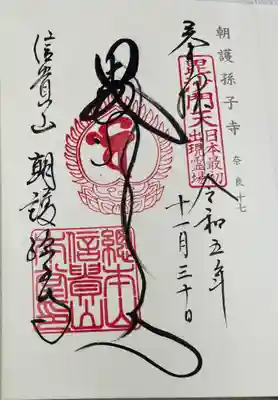 朝護孫子寺 奈良 十七
奉拝
毘沙門天
日本最初
出現霊場
令和五年
十一月三十日
信貴山 朝護孫子寺
總本山
信貴山